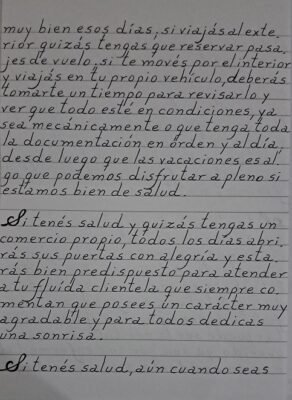 muy bien esos días, si viajás al exte.
rior quizás tengas que reservar pasa.
jes de vuelo, si te movés por el interior
y viajás en tu propio vehículo, deberás
tomarte un tiempo para revisarlo y
ver que todo esté en condiciones, ya
sea mecánicamente o que tenga toda
la documentación en orden y al día,
desde luego que las vacaciones es al.
go que podemos disfrutar a pleno si
estamos bien de salud.
Si tenés salud y quizás tengas un
comercio propio, todos los días abri.
rás sus puertas con alegría y esta.
rás bien predispuesto para atender
a tu fluída clientela que siempre co.
mentan que posees un carácter muy
agradable y para todos dedicas
una sonrisa.
Si tenés salud, aún cuando seas